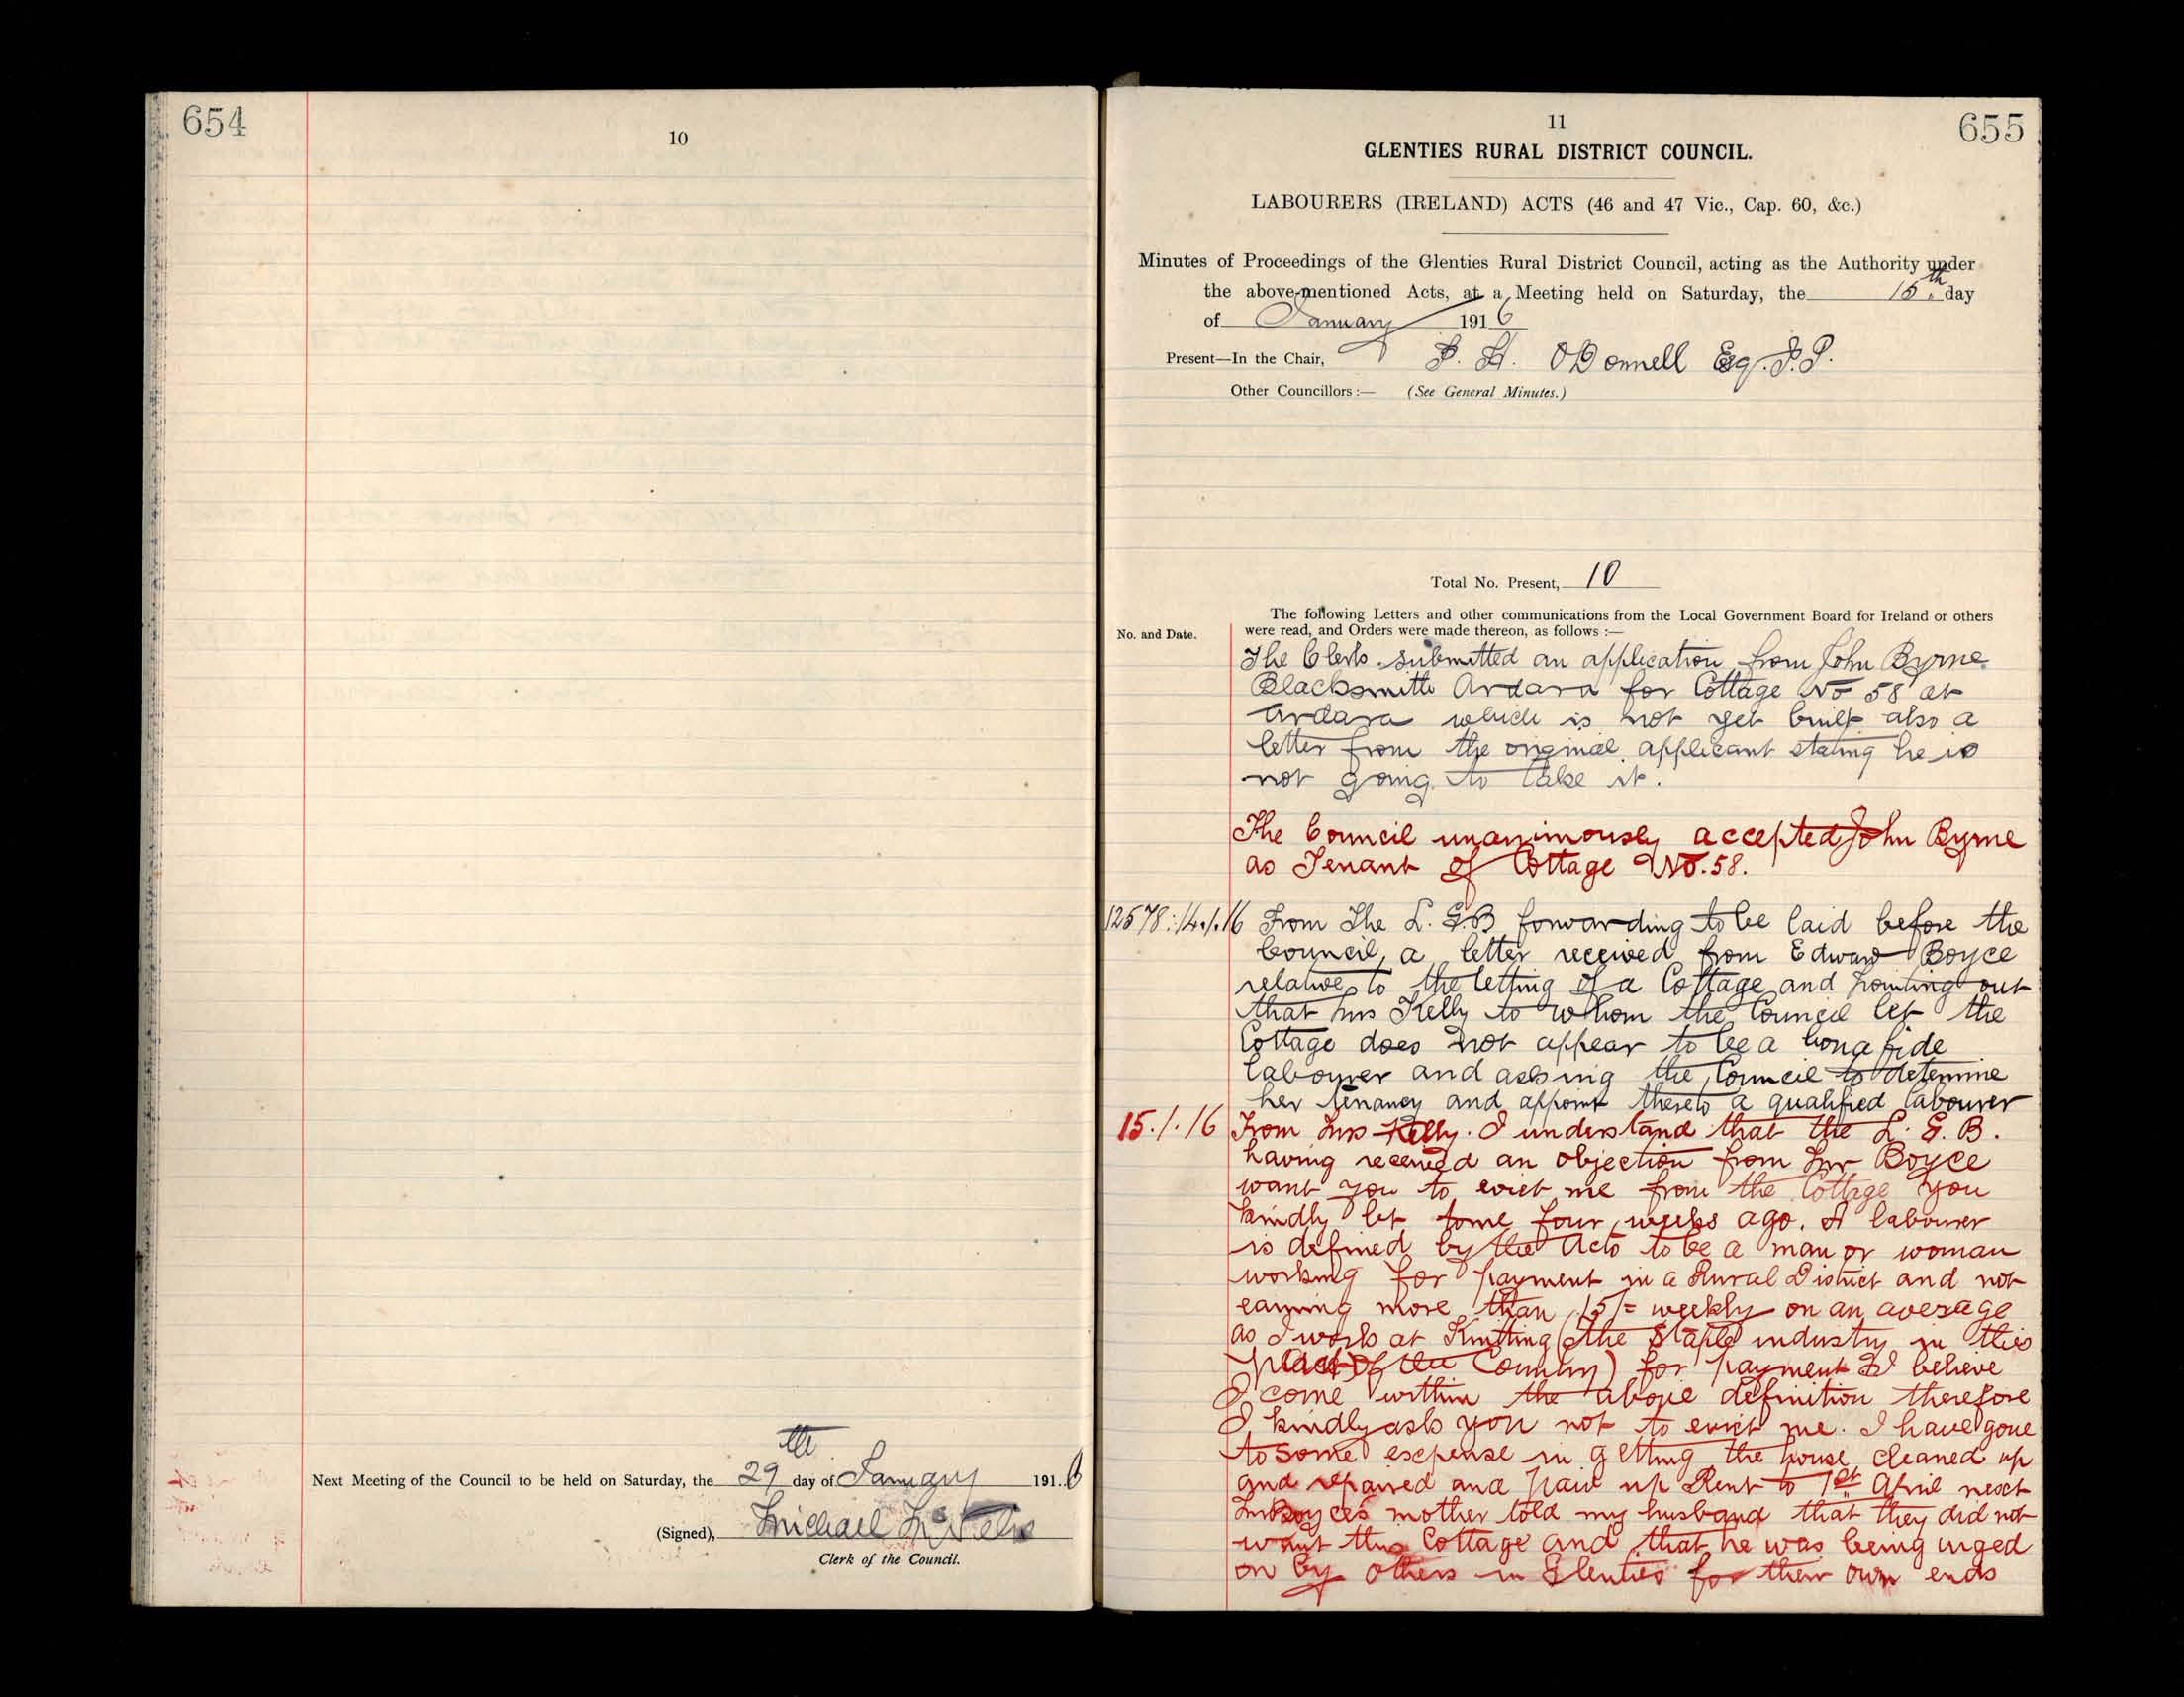 654
10
Next Meeting of the Council to be held on Saturday, the 29th day of January 1916
(Signed), Michael McNelis
Clerk of the Council.
11
655
GLENTIES RURAL DISTRICT COUNCIL.
LABOURERS (IRELAND) ACTS (46 and 47 Vic., Cap. 60, &c.)
Minutes of Proceedings of the Glenties Rural District Council, acting as the Authority under
the above-mentioned Acts, at a Meeting held on Saturday, the 15th. day
of January 1916
Present—In the Chair, O'Donnell Esq. J.P.
Other Councillors:— (See General Minutes.)
Total No. Present, 10
The following Letters and other communications from the Local Government Board for Ireland or others
No. and Date.
were read, and Orders were made thereon, as follows :—
The Clerk submitted an application from John Byrne
Blacksmith Ardara for Cottage No 58 at
Ardara which is not yet built also a
letter from the original applicant stating he is
not going to take it.
The Council unanimously accepted John Byrne
as Tenant of Cottage No. 58.
12578:14.1.16 From The L.G.B forwarding to be laid before the
Council, a letter received from Edward Boyce
relative to the letting of a Cottage and pointing out
that Mrs Kelly to whom the Council let the
Cottage does not appear to be a bona fide
labourer and asking the Council to determine
her tenancy and appoint thereto a qualified labourer
15.1.16 From Mrs Kelly. I understand that the L.G.B.
having received an objection from Mr Boyce
want you to evict me from the Cottage you
kindly let to me four weeks ago. A labourer
is defined by the Acts to be a man or woman
working for payment in a Rural District and not
earning more than 15/= weekly on an average
as I work at Knitting (the Staple industry in this
part of the Country) for payment I believe
I come within the above definition therefore
I kindly ask you not to evict me. I have gone
to some expense in getting the house cleaned up
and repaired and paid up Rent to 1st April next
Mr Boyce's mother told my husband that they did not
want this Cottage and that he was being urged
on by others in Glenties for their own ends